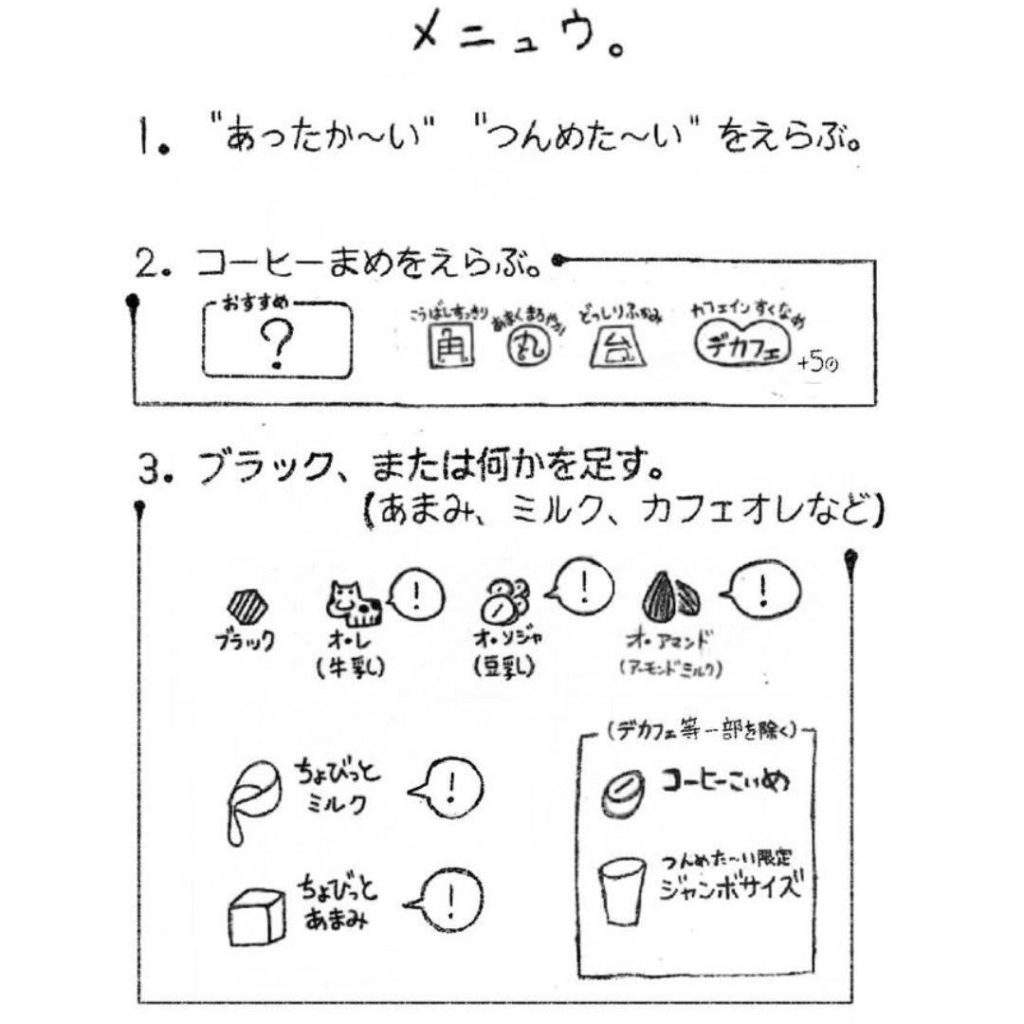 メニュウ。
1. "あったか〜い" "つんめた〜い" をえらぶ。
2. コーヒーまめをえらぶ。
おすすめ
?
こうばしすっきり
角
あまくまろやか
丸
どっしりふかみ
台
カフェインすくなめ
デカフェ
+50
3. ブラック、または何かを足す。
(あまみ、ミルク、カフェオレなど)
ブラック
オ・レ
(牛乳)
!
オ・ソジャ
(豆乳)
!
オ・アマンド
(アーモンドミルク)
!
ちょびっと
ミルク
!
ちょびっと
あまみ
!
(デカフェ等一部を除く)
コーヒーこいめ
つんめた〜い限定
ジャンボサイズ